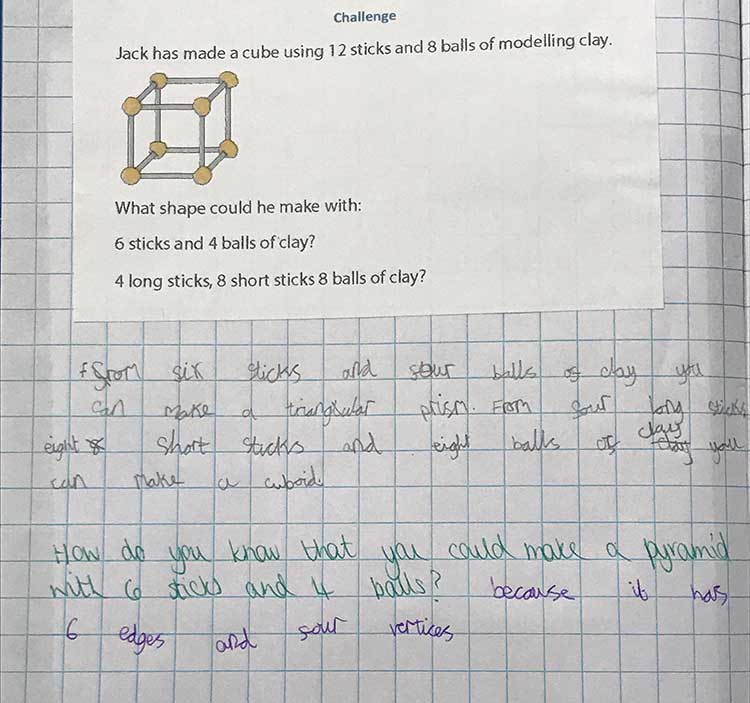 Challenge
Jack has made a cube using 12 sticks and 8 balls of modelling clay.
What shape could he make with:
6 sticks and 4 balls of clay?
4 long sticks, 8 short sticks 8 balls of clay?
from six sticks and four balls of clay you
can make a triangular prism. From four long sticks
eight short sticks and eight balls of clay you
can make a cuboid.
How do you know that you could make a pyramid
with 6 sticks and 4 balls? because it has
6 edges and four vertices